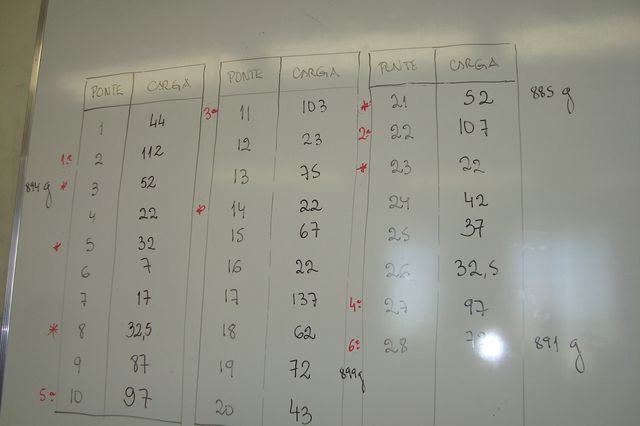 PONTE CARGA
1 44
1º 2 112
894 g * 3 52
4 22
* 5 32
6 7
7 17
* 8 32,5
9 87
5º 10 97
PONTE CARGA
3º 11 103
12 23
13 75
* 14 22
15 67
16 22
17 137
18 62
19 72 899g
20 43
PONTE CARGA
* 21 52 885 g
2º 22 107
* 23 22
24 42
25 37
26 32,5
4º 27 97
6º 28 891 g